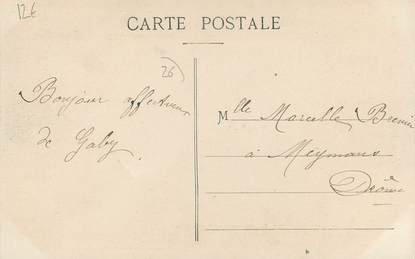 12€
CARTE POSTALE
26
Bonjour affectueux
de Gaby
Mlle Marcelle
à Meymans
Drôme